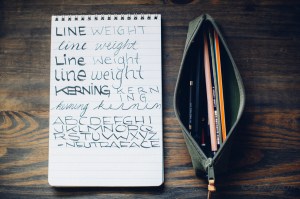 LINE WEIGHT
line weight
Line Weight
line weight
KERNING KERN
ING
kerning kernin
ABCDEFGH
IJKLMNOPQ
RSTUVWXYZ
-NEUTRAFACE